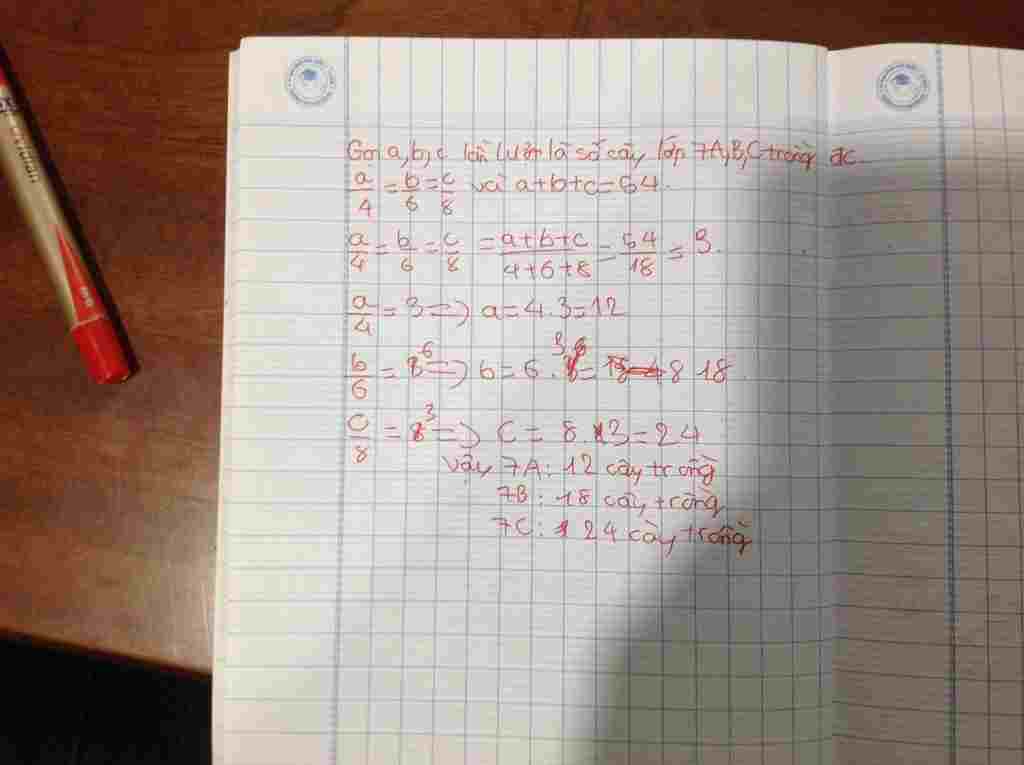 Gọi a, b, c lần lượt là số cây lớp 7A, B, C trồng đc
a/4 = b/6 = c/8 và a+b+c=54.
a/4 = b/6 = c/8 = a+b+c/4+6+8 = 54/18 = 3.
a/4 = 3 => a = 4.3 = 12
b/6 = 3 => b = 6.3 = 18
c/8 = 3 => c = 8.3 = 24
vậy 7A: 12 cây trồng
7B: 18 cây trồng
7C: 24 cây trồng